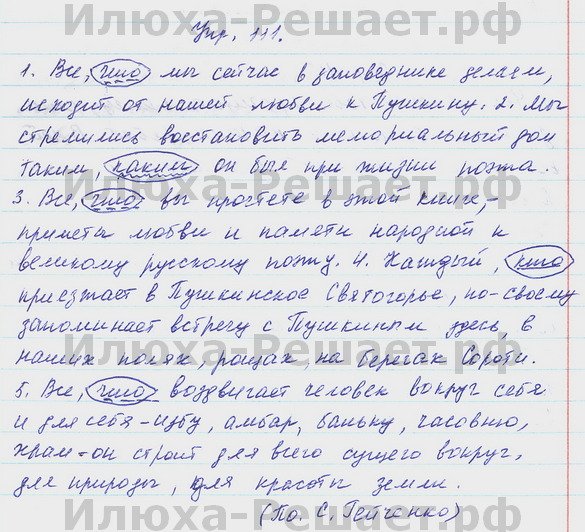 Илюха-Решает.рф
Упр. 111.
1. Все, что мы сейчас в заповеднике делаем,
исходит от нашей любви к Пушкину. 2. Мы
стремились восстановить мемориальный дом
таким, каким он был при жизни поэта.
Илюха-Решает.рф
3. Все, что вы прочтете в этой книге,-
приметы любви и памяти народной к
великому русскому поэту. 4. Каждый, кто
приезжает в Пушкинское Святогорье, по-своему
запоминает встречу с Пушкиным здесь, в
наших полях, рощах, на берегах Сороти.
Илюха-Решает.рф
5. Все, что воздвигает человек вокруг себя
и для себя - избу, амбар, баньку, часовню,
храм - он строит для всего сущего вокруг,
для природы, для красоты земли.
(По С. Гейченко)
Илюха-Решает.рф